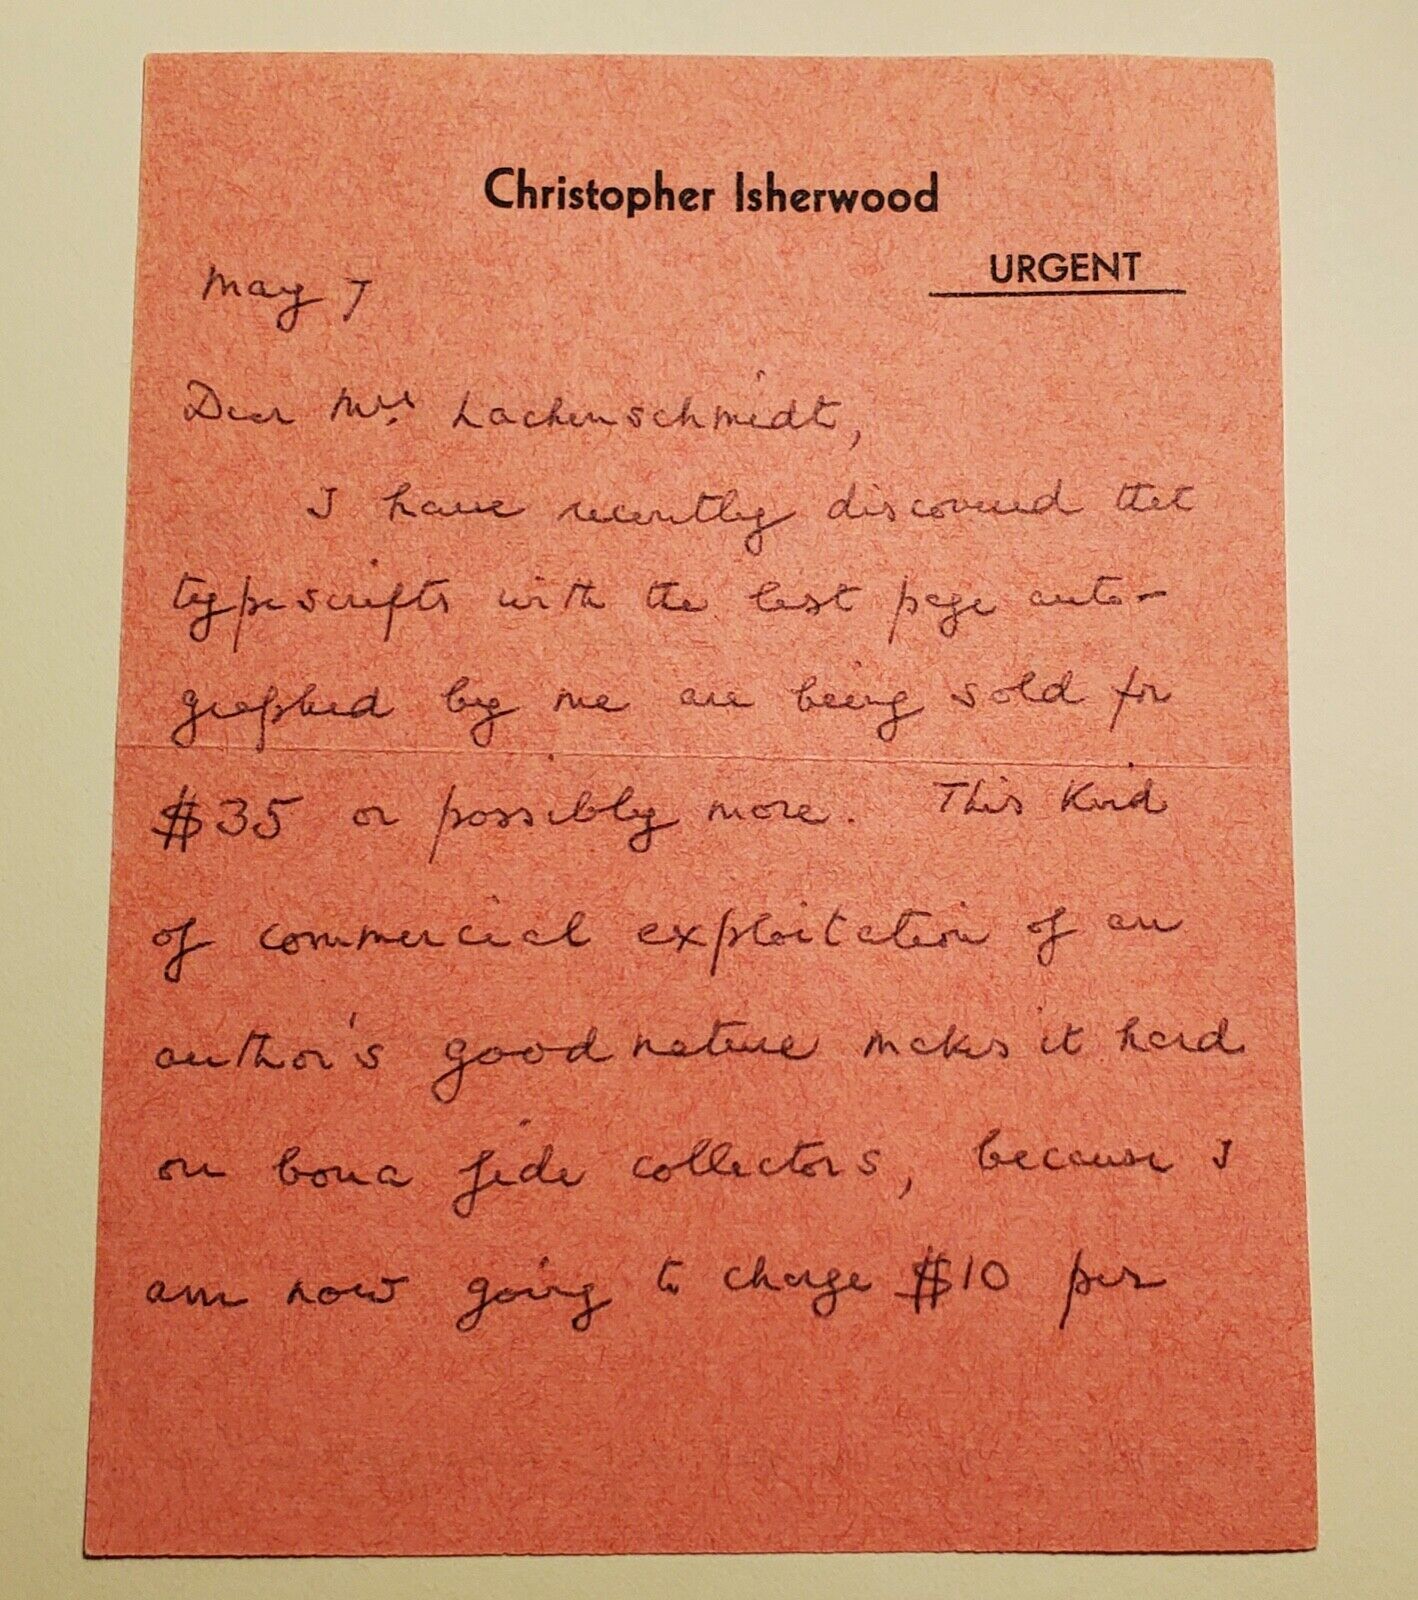 Christopher Isherwood
URGENT
May 7
Dear Mrs. Lachenschmidt,
I have recently discovered that
typescripts with the last page auto-
graphed by me are being sold for
$35 or possibly more. This kind
of commercial exploitation of an
author's good nature makes it hard
on bona fide collectors, because I
am now going to charge $10 per